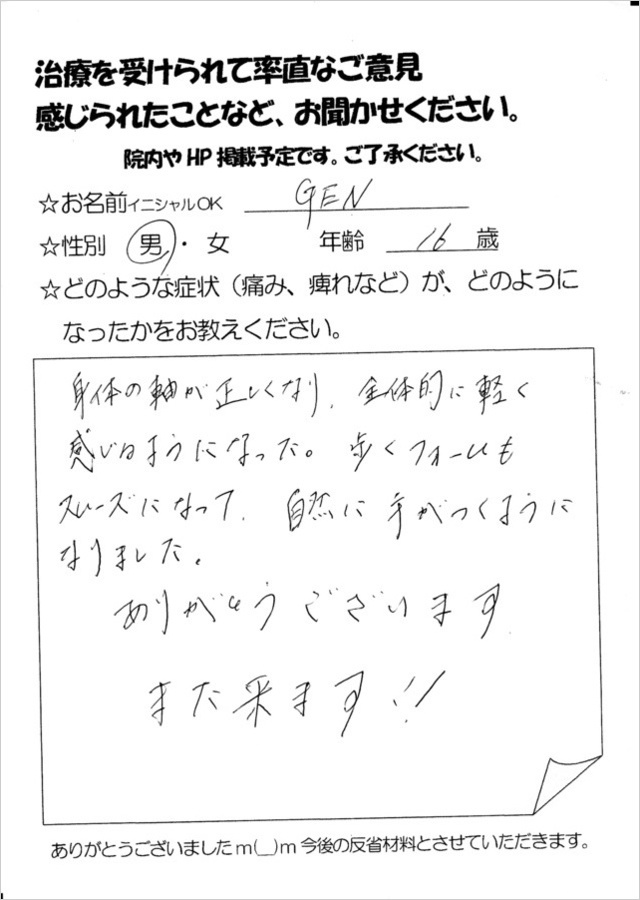 治療を受けられて率直なご意見
感じられたことなど、お聞かせください。
院内やHP掲載予定です。ご了承ください。
☆お名前イニシャルOK GEN
☆性別 男・女 年齢 16 歳
☆どのような症状（痛み、痺れなど）が、どのように
なったかをお教えください。
身体の軸が正しくなり、全体的に軽く
感じるようになった。歩くフォームも
スムーズになって、自然に手がつくように
なりました。
ありがとうございます
また来ます!!
ありがとうございましたm(__)m今後の反省材料とさせていただきます。